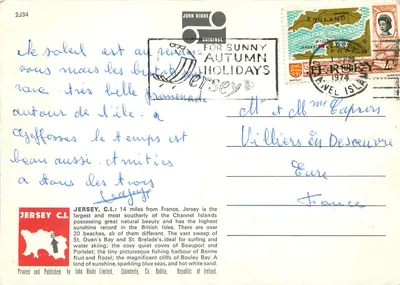 2J34
JOHN HINDE
ORIGINAL
FOR SUNNY
AUTUMN
HOLIDAYS
Jersey
ENGLAND
FRANCE
1974
Le soleil est au rendez
vous mais les
rare. très belle promenade
autour de l'île. a
Geffosses le temps est
beau aussi.
a dans
Mr et Mme
Villiers en Desoeuvre
Eure
France
JERSEY C.I.
JERSEY, C.I.: 14 miles from France, Jersey is the
largest and most southerly of the Channel Islands
possessing great natural beauty and has the highest
sunshine record in the British Isles. There are over
20 beaches, all of them different. The vast sweep of
St. Ouen's Bay and St. Brelade's, ideal for surfing and
water skiing; the cosy quiet coves of Beauport and
Portelet; the tiny picturesque fishing harbour of Bonne
Nuit and Rozel; the magnificent cliffs of Bouley Bay. A
land of sunshine, sparkling blue seas, and hot white sand.
Printed and Published by John Hinde Limited, Cabinteely, Co. Dublin, Republic of Ireland.